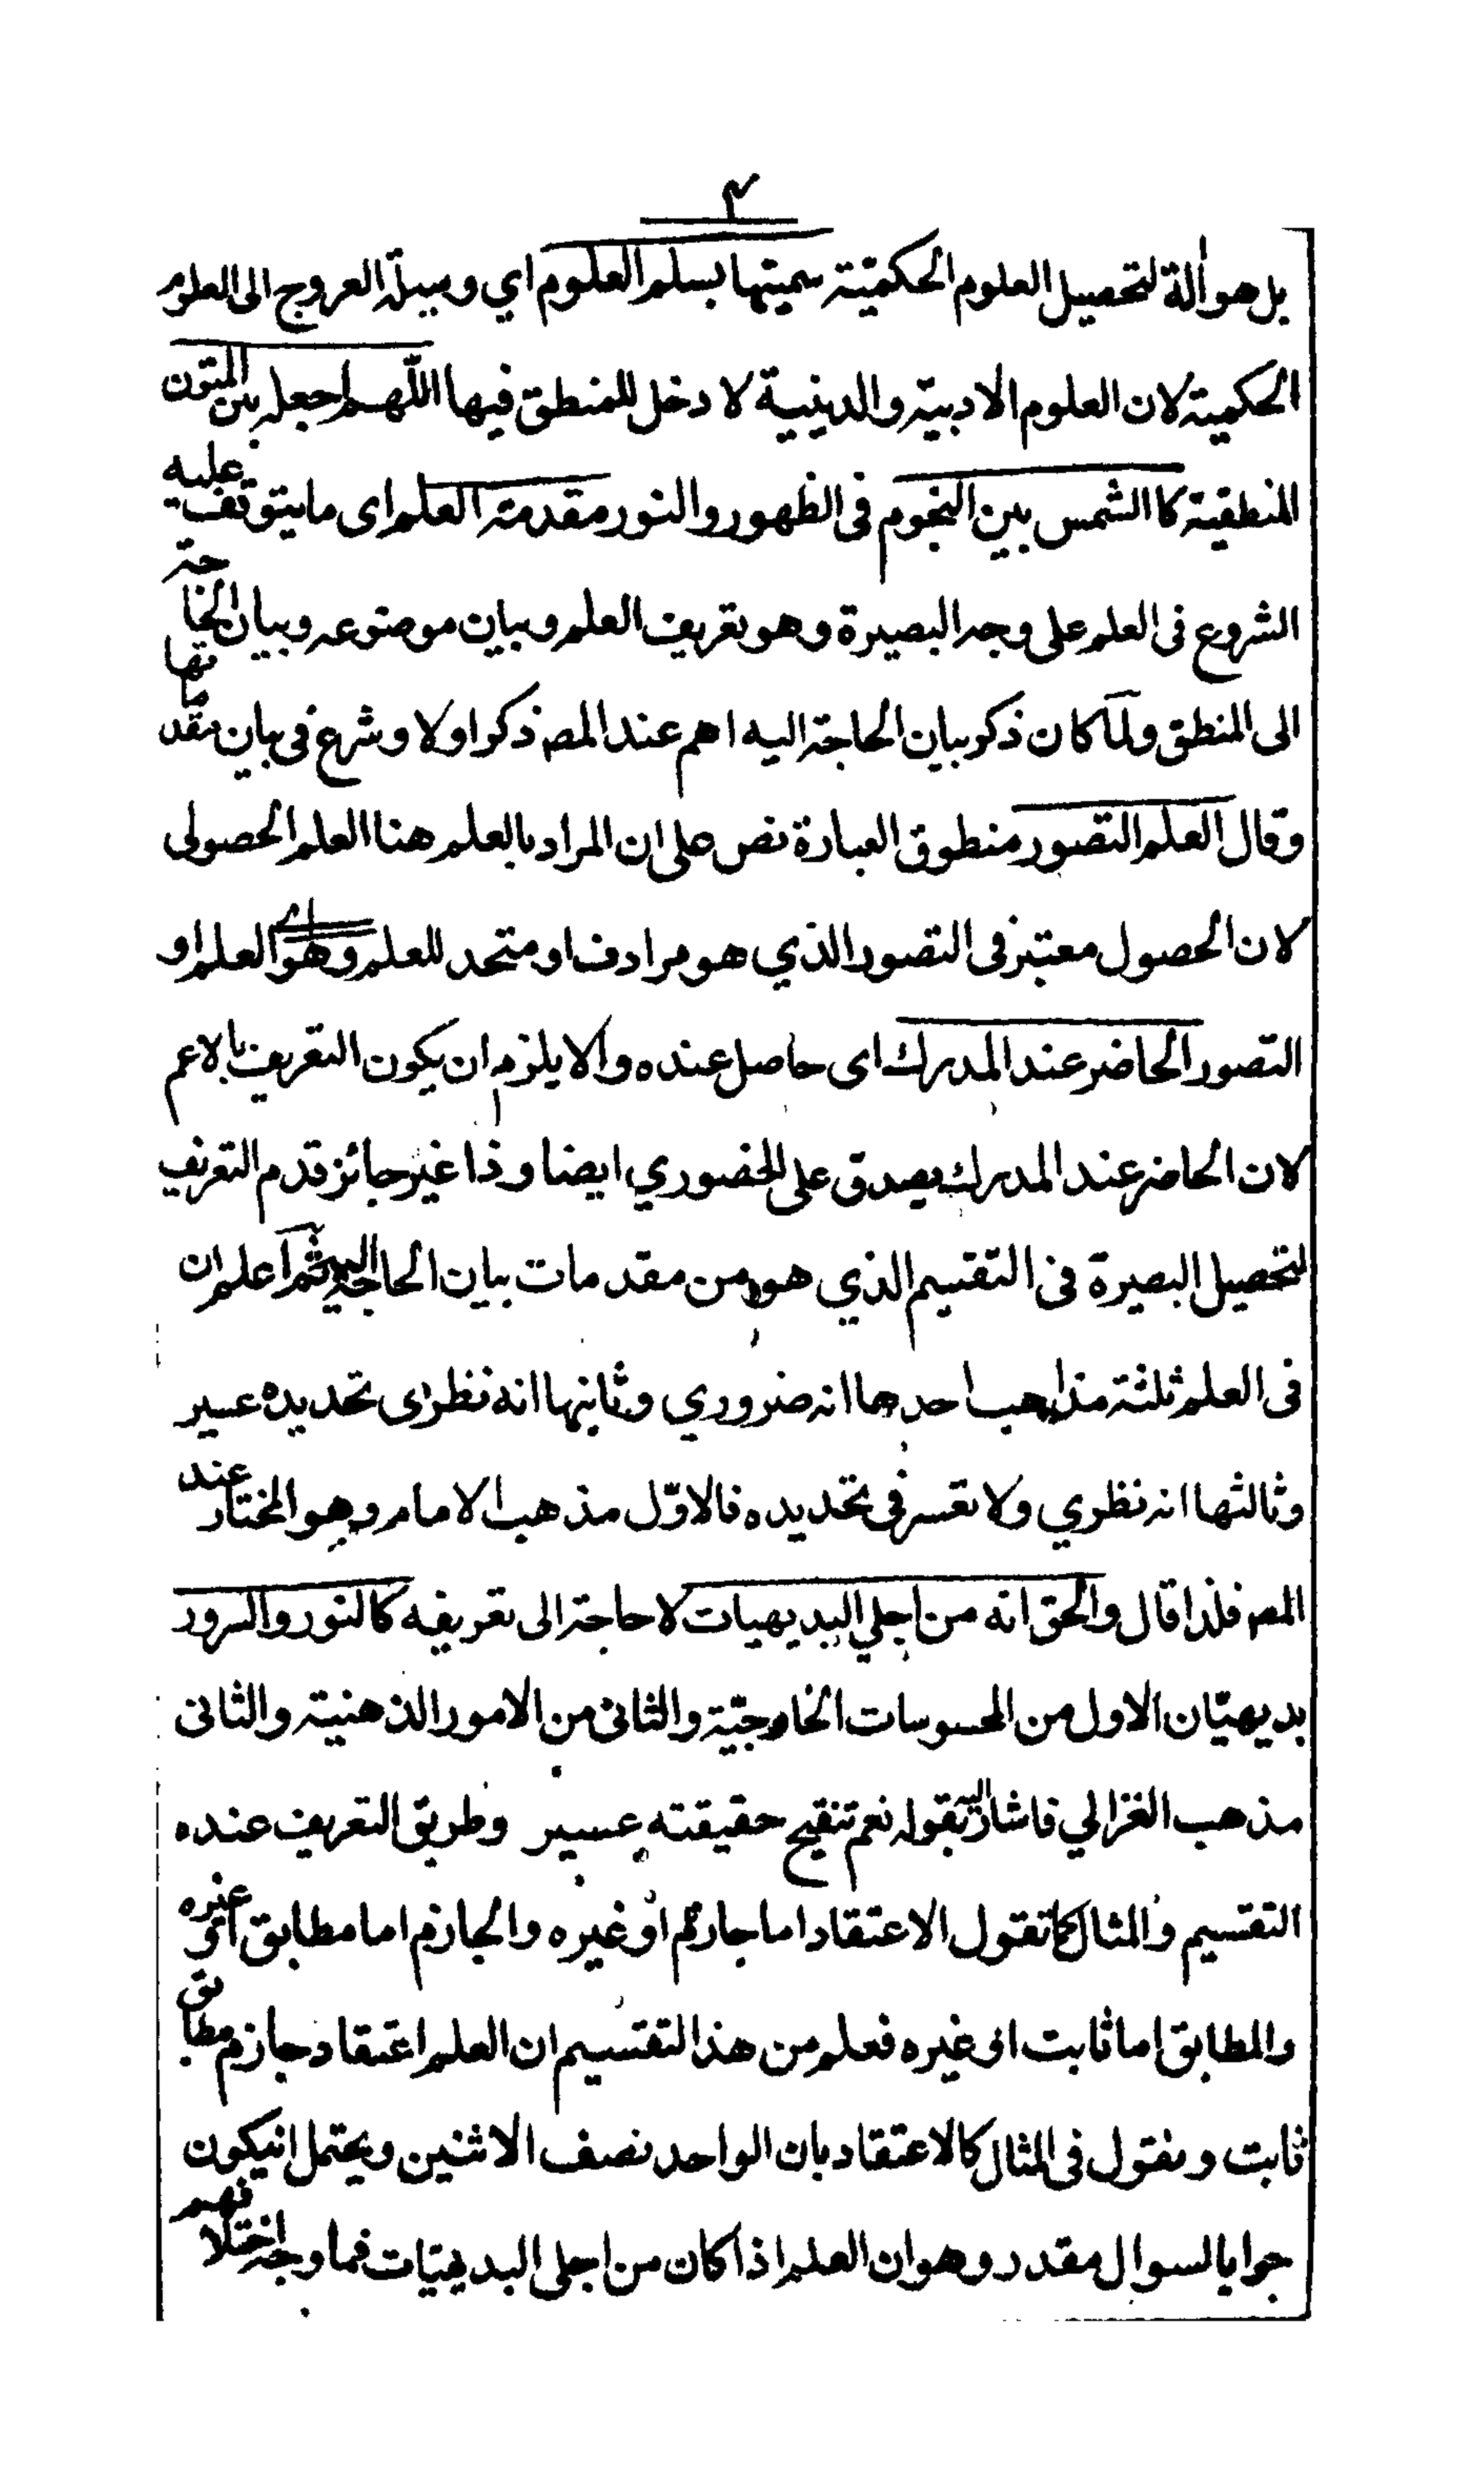 ٣
بل هو ألة لتحصيل العلوم الحكميّة سميتها بسلم العلوم اي وسيلة العروج الى العلوم
الحكمية لان العلوم الادبية والدينية لا دخل للمنطق فيها اللّهم اجعله بين المتون
المنطقية كا الشمس بين النجوم فى الظهور والنور مقدمة العلم اى ما يتوقف عليه
الشروع فى العلم على وجه البصيرة وهو تعريف العلم وبيان موضوعه وبيان الحاجة
الى المنطق ولمّا كان ذكر بيان الحاجة اليه اهم عند المصـ ذكر اولا وشرع فى بيان مقدماتها
وقال العلم التصور منطوق العبارة نص على ان المراد بالعلم هنا العلم الحصولى
لان الحصول معتبر فى التصور الذي هو مرادف او متحد للعلم وهو اے العلم او
التصور الحاضر عند المدرك اى حاصل عنده والا يلزم ان يكون التعريف بالاعم
لان الحاضر عند المدرك يصدق على الحضوري ايضا وذا غير جائز قدم التعريف
لتحصيل البصيرة فى التقسيم الذي هو من مقدمات بيان الحاجة اليه ثم اعلم ان
فى العلم ثلثة مذاهب احدها انه ضروري وثانيها انه نظرى تحديده عسير
وثالثها انه نظري ولا تعسر فى تحديده فالاوّل مذهب الامام وهو المختار عند
المصـ فلذا قال والحق انه من اجلي البديهيات لا حاجة الى تعريفه كالنور والسرور
بديهيّان الاول من المحسوسات الخارجيّة والثانى من الامور الذهنية والثانى
مذهب الغزالي فاشار اليه بقوله نعم تنقيح حقيقته عسير وطريق التعريف عنده
التقسيم والمثال كما تقول الاعتقاد اما جازم او غيره والجازم اما مطابق او غيره
والمطابق اما ثابت او غيره فعلم من هذا التقسيم ان العلم اعتقاد جازم مطابق
ثابت ونقول فى المثال كالاعتقاد بان الواحد نصف الاثنين ويحتمل انيكون
جوابا لسوال مقدر وهو ان العلم اذا كان من اجلى البديهيّات فما وجه اختلافهم